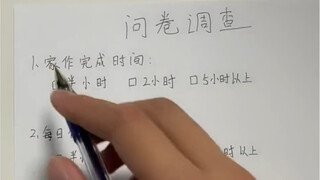 问卷调查
1.家作完成时间：
半小时 □2小时 □5小时以上
2.每日
半 时以上